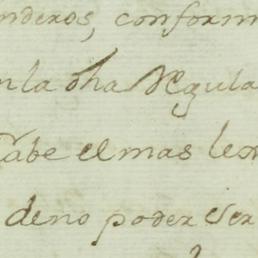 nderos, conform
nla dha Regula
Cabe el mas leve
deno poder ser